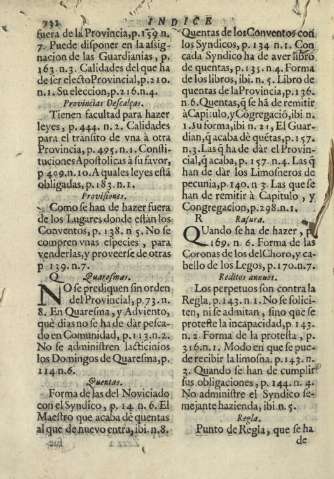 732
INDICE
fuera de la Provincia, p.159 n.
7. Puede disponer en la assig-
nacion de las Guardianias, p.
163. n.3. Calidades del que ha
de ser electo Provincial, p.210.
n.1. Su eleccion, p.216. n.4.
Provincias Descalças.
Tienen facultad para hazer
leyes, p. 444. n. 2. Calidades
para el transito de vna à otra
Provincia, p. 495. n.1. Consti-
tuciones Apostolicas à su favor,
p 409. n.10. A quales leyes està
obligadas, p.183. n.1.
Provisiones.
Como se han de hazer fuera
de los Lugares donde están los
Conventos, p. 138. n 5. No se
compren vnas especies, para
venderlas, y proveerse de otras
p 139. n.7.
Q
Quaresmas.
NO se prediquen sin orden
del Provincial, p.73. n.
8. En Quaresma, y Adviento,
què dias no se ha de dàr pesca-
do en Comunidad, p.113. n.2.
No se administren lacticinios
los Domingos de Quaresma, p.
114 n.6.
Quentas.
Forma de las del Noviciado
con el Syndico, p. 14 n. 6. El
Maestro que acaba dè quentas
al que de nuevo entra, ibi n.8.
Quentas de los Conventos con
los Syndicos, p. 134 n.1. Con
cada Syndico ha de aver libro
de quentas, p.135. n.4. Forma
de los libros, ibi n. 5. Libro de
quentas de la Provincia, p.136
n.6. Quentas, q̃ se hã de remitir
à Capitulo, y Cõgregació, ibi n.
1. Su forma, ibi n. 21, El Guar-
dian, q̃ acaba dè quẽtas, p.157.
n.3. Las q̃ ha de dàr el Provin-
cial, q̃ acaba, p.157. n.4. Las q̃
han de dàr los Limosneros de
pecunia, p.140 n. 3. Las que se
han de remitir à Capitulo, y
Congregacion, p.298. n.1.
R
Rasura.
QUando se ha de hazer, p.
169. n. 6. Forma de las
Coronas de los del Choro, y ca-
bello de los Legos, p.170. n.7.
Reditos annuos.
Los perpetuos son contra la
Regla, p.143. n.1. No se solici-
ten, ni se admitan, sino que se
proteste la incapacidad, p.143.
n. 2. Forma de la protesta, p.
316. n.1. Modo en que se pue-
de recibir la limosna, p.143. n.
3. Quando se han de cumplir
sus obligaciones, p. 144. n. 4.
No administre el Syndico se-
mejante hazienda, ibi n. 5.
Regla.
Punto de Regla, que se ha
de